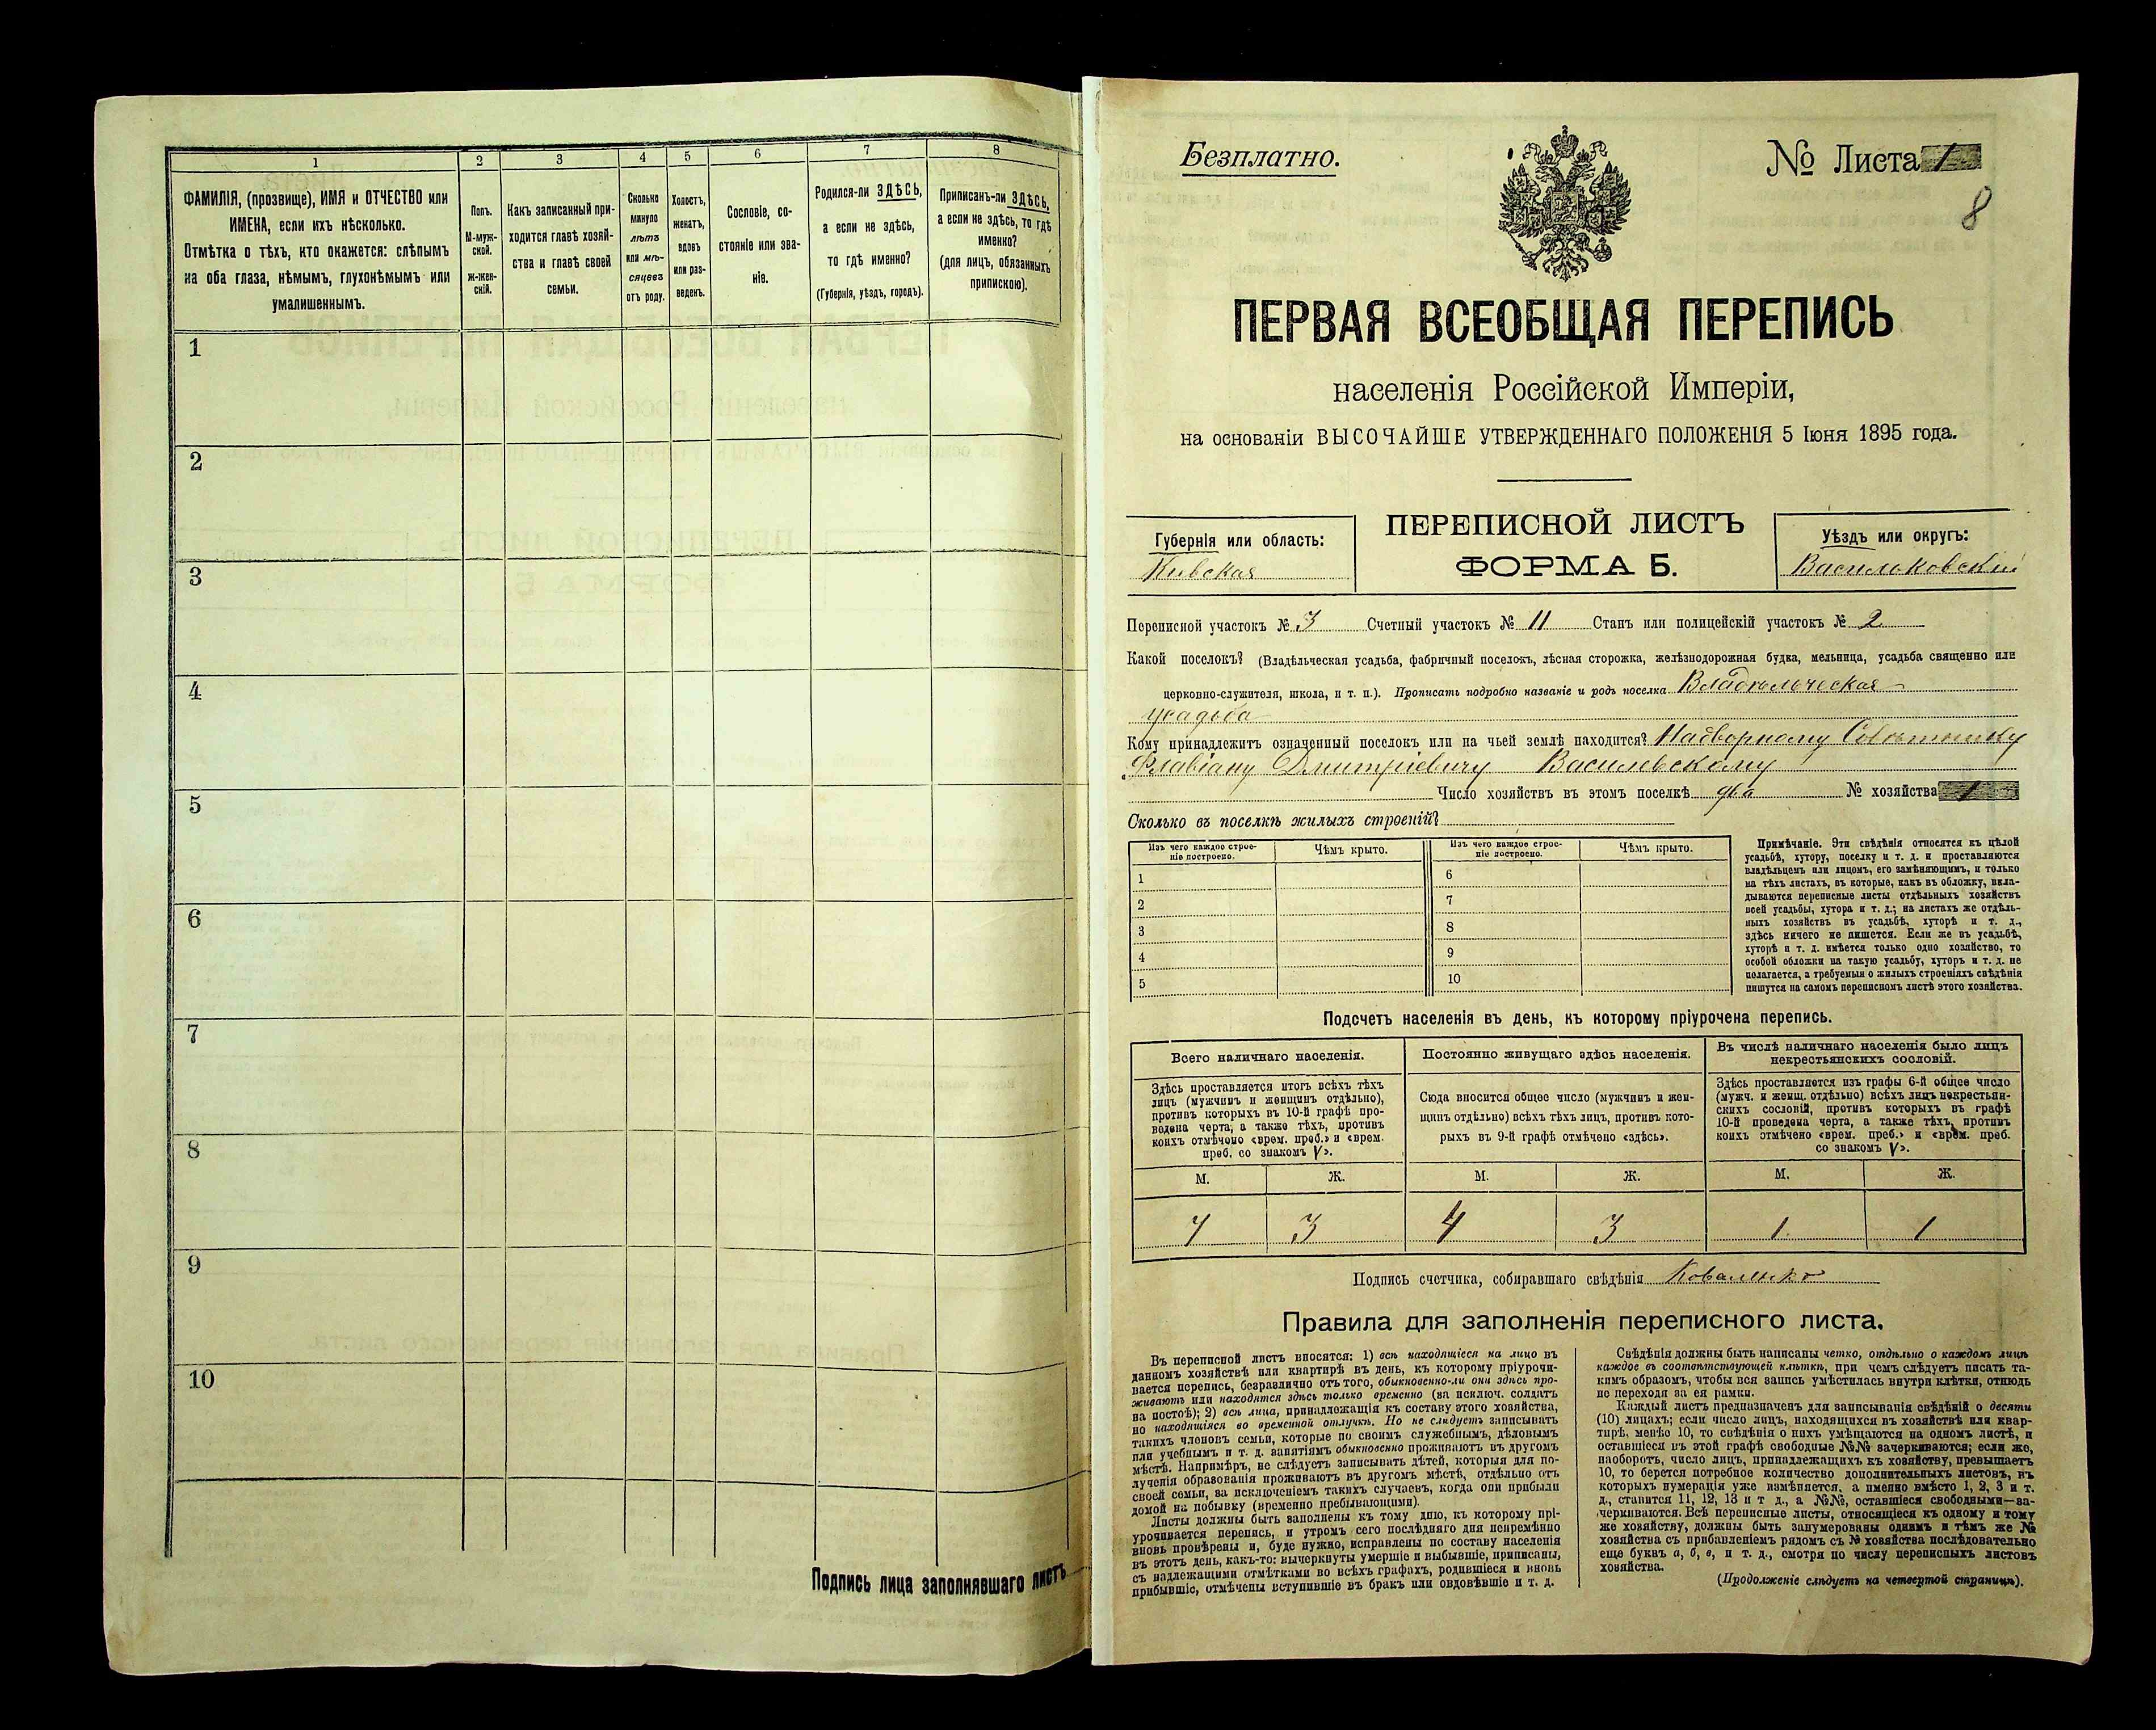 1
2
3
4
5
6
7
8
ФАМИЛІЯ, (прозвище), ИМЯ и ОТЧЕСТВО или
ИМЕНА, если ихъ нѣсколько.
Отмѣтка о тѣхъ, кто окажется: слѣпымъ
на оба глаза, нѣмымъ, глухонѣмымъ или
умалишеннымъ.
Полъ.
М-муж-
ской.
Ж-жен-
скій.
Какъ записанный при-
ходится главѣ хозяй-
ства и главѣ своей
семьи.
Сколько
минуло
лѣтъ
или мѣ-
сяцевъ
отъ роду.
Холостъ,
женатъ,
вдовъ
или раз-
веденъ.
Сословіе, со-
стояніе или зва-
ніе.
Родился-ли ЗДѢСЬ,
а если не здѣсь,
то гдѣ именно?
(Губернія, уѣздъ, городъ).
Приписанъ-ли ЗДѢСЬ,
а если не здѣсь, то гдѣ
именно?
(для лицъ, обязанныхъ
припискою).
1
2
3
4
5
6
7
8
9
10
Подпись лица заполнявшаго листъ
Безплатно.
№ Листа 1
8
ПЕРВАЯ ВСЕОБЩАЯ ПЕРЕПИСЬ
населенія Россійской Имперіи,
на основаніи ВЫСОЧАЙШЕ УТВЕРЖДЕННАГО ПОЛОЖЕНІЯ 5 Іюня 1895 года.
Губернія или область:
Кіевская
ПЕРЕПИСНОЙ ЛИСТЪ
ФОРМА Б.
Уѣздъ или округъ:
Васильковскій
Переписной участокъ № 3 Счетный участокъ № 11 Станъ или полицейскій участокъ № 2
Какой поселокъ? (Владѣльческая усадьба, фабричный поселокъ, лѣсная сторожка, желѣзнодорожная будка, мельница, усадьба священно или
церковно-служителя, школа, и т. п.). Прописать подробно названіе и родъ поселка Владѣльческая
усадьба
Кому принадлежитъ означенный поселокъ или на чьей землѣ находится? Надворному Совѣтнику
Флавіану Дмитріевичу Василевскому
Число хозяйствъ въ этомъ поселкѣ два № хозяйства 1
Сколько въ поселкѣ жилыхъ строеній?
Изъ чего каждое строе-
ніе построено.
Чѣмъ крыто.
Изъ чего каждое строе-
ніе построено.
Чѣмъ крыто.
1
2
3
4
5
6
7
8
9
10
Примѣчаніе. Эти свѣдѣнія относятся къ цѣлой
усадьбѣ, хутору, поселку и т. д. и проставляются
владѣльцемъ или лицомъ, его замѣняющимъ, и только
на тѣхъ листахъ, въ которые, какъ въ обложку, вкла-
дываются переписные листы отдѣльныхъ хозяйствъ
всей усадьбы, хутора и т. д.; на листахъ же отдѣль-
ныхъ хозяйствъ въ усадьбѣ, хуторѣ и т. д.,
здѣсь ничего не пишется. Если же въ усадьбѣ,
хуторѣ и т. д. имѣется только одно хозяйство, то
особой обложки на такую усадьбу, хуторъ и т. д. не
полагается, а требуемыя о жилыхъ строеніяхъ свѣдѣнія
пишутся на самомъ переписномъ листѣ этого хозяйства.
Подсчетъ населенія въ день, къ которому пріурочена перепись.
Всего наличнаго населенія.
Постоянно живущаго здѣсь населенія.
Въ числѣ наличнаго населенія было лицъ
некрестьянскихъ сословій.
Здѣсь проставляется итогъ всѣхъ тѣхъ
лицъ (мужчинъ и женщинъ отдѣльно),
противъ которыхъ въ 10-й графѣ про-
ведена черта, а также тѣхъ, противъ
коихъ отмѣчено «врем. преб.» и «врем.
преб. со знакомъ V».
Сюда вносится общее число (мужчинъ и жен-
щинъ отдѣльно) всѣхъ тѣхъ лицъ, противъ кото-
рыхъ въ 9-й графѣ отмѣчено «здѣсь».
Здѣсь проставляется изъ графы 6-й общее число
(мужч. и женщ. отдѣльно) всѣхъ лицъ некрестьян-
скихъ сословій, противъ которыхъ въ графѣ
10-й проведена черта, а также тѣхъ, противъ
коихъ отмѣчено «врем. преб.» и «врем. преб.
со знакомъ V».
М. Ж. М. Ж. М. Ж.
3 4 3 1 1
Подпись счетчика, собиравшаго свѣдѣнія Коваленко
Правила для заполненія переписного листа.
Въ переписной листъ вносятся: 1) всѣ находящіеся на лицо въ
данномъ хозяйствѣ или квартирѣ въ день, къ которому пріурочи-
вается перепись, безразлично отъ того, обыкновенно-ли они здѣсь про-
живаютъ или находятся здѣсь только временно (за исключ. солдатъ
на постоѣ); 2) всѣ лица, принадлежащія къ составу этого хозяйства,
но находящіяся во временной отлучкѣ. Но не слѣдуетъ записывать
такихъ членовъ семьи, которые по своимъ служебнымъ, дѣловымъ
или учебнымъ и т. д. занятіямъ обыкновенно проживаютъ въ другомъ
мѣстѣ. Напримѣръ, не слѣдуетъ записывать дѣтей, которыя для по-
лученія образованія проживаютъ въ другомъ мѣстѣ, отдѣльно отъ
своей семьи, за исключеніемъ такихъ случаевъ, когда они прибыли
домой на побывку (временно пребывающими).
Листы должны быть заполнены къ тому дню, къ которому прі-
урочивается перепись, и утромъ сего послѣдняго дня непремѣнно
вновь провѣрены и, буде нужно, исправлены по составу населенія
въ этотъ день, какъ-то: вычеркнуты умершіе и выбывшіе, приписаны,
съ надлежащими отмѣтками во всѣхъ графахъ, родившіеся и вновь
прибывшіе, отмѣчены вступившіе въ бракъ или овдовѣвшіе и т. д.
Свѣдѣнія должны быть написаны четко, отдѣльно о каждомъ лицѣ
каждое въ соотвѣтствующей клѣткѣ, при чемъ слѣдуетъ писать та-
кимъ образомъ, чтобы вся запись умѣстилась внутри клѣтки, отнюдь
не переходя за ея рамки.
Каждый листъ предназначенъ для записыванія свѣдѣній о десяти
(10) лицахъ; если число лицъ, находящихся въ хозяйствѣ или квар-
тирѣ, менѣе 10, то свѣдѣнія о нихъ умѣщаются на одномъ листѣ, и
оставшіеся въ этой графѣ свободные №№ зачеркиваются; если же,
наоборотъ, число лицъ, принадлежащихъ къ хозяйству, превышаетъ
10, то берется потребное количество дополнительныхъ листовъ, въ
которыхъ нумерація уже измѣняется, а именно вмѣсто 1, 2, 3 и т.
д., ставится 11, 12, 13 и т д., а №№, оставшіеся свободными—за-
черкиваются. Всѣ переписные листы, относящіеся къ одному и тому
же хозяйству, должны быть занумерованы однимъ и тѣмъ же №
хозяйства съ прибавленіемъ рядомъ съ № хозяйства послѣдовательно
еще буквъ а, б, в, и т. д., смотря по числу переписныхъ листовъ
хозяйства.
(Продолженіе слѣдуетъ на четвертой страницѣ).